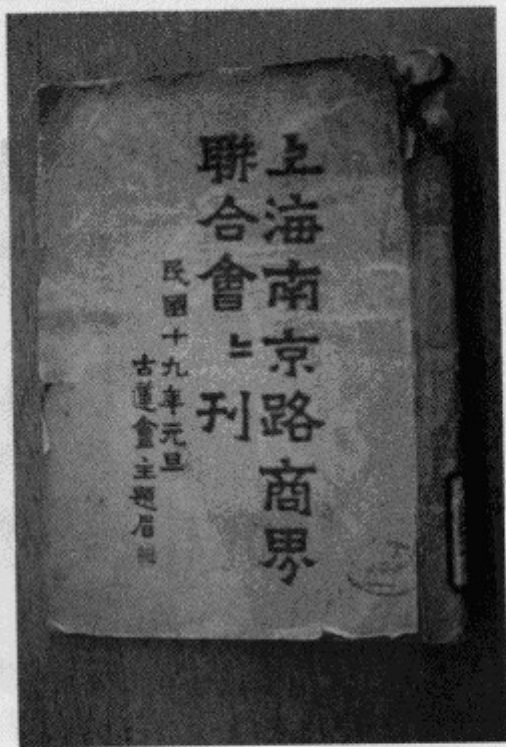 上海南京路商界
聯合會〻刊
民國十九年元旦
古蓮盦主題眉